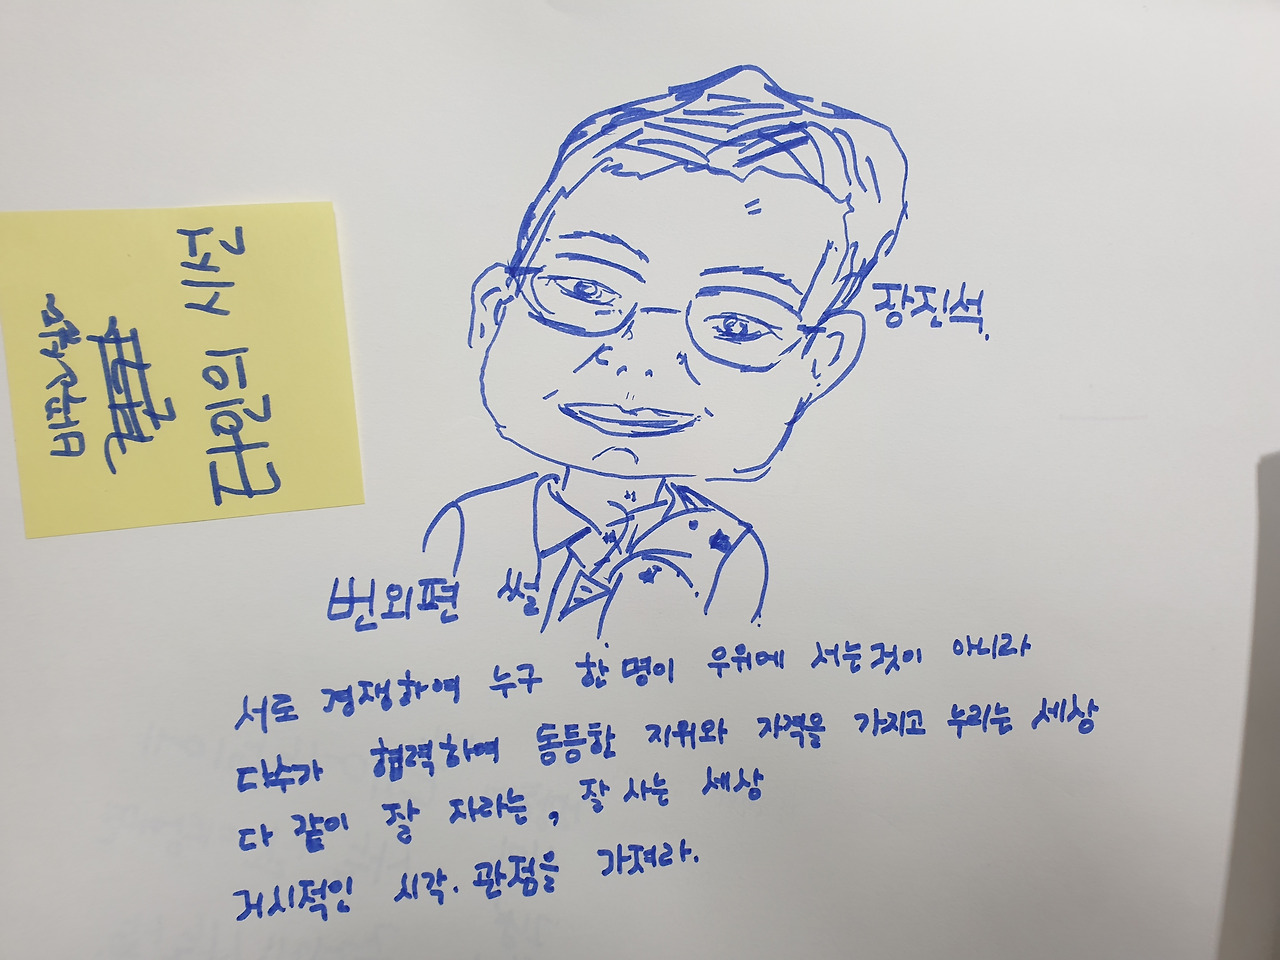 장진석.
번외편 썰
서로 경쟁하여 누구 한 명이 우위에 서는것이 아니라
다수가 협력하여 동등한 지위와 자격을 가지고 누리는 세상
다 같이 잘 자라는, 잘 사는 세상
거시적인 시각. 관점을 가져라.